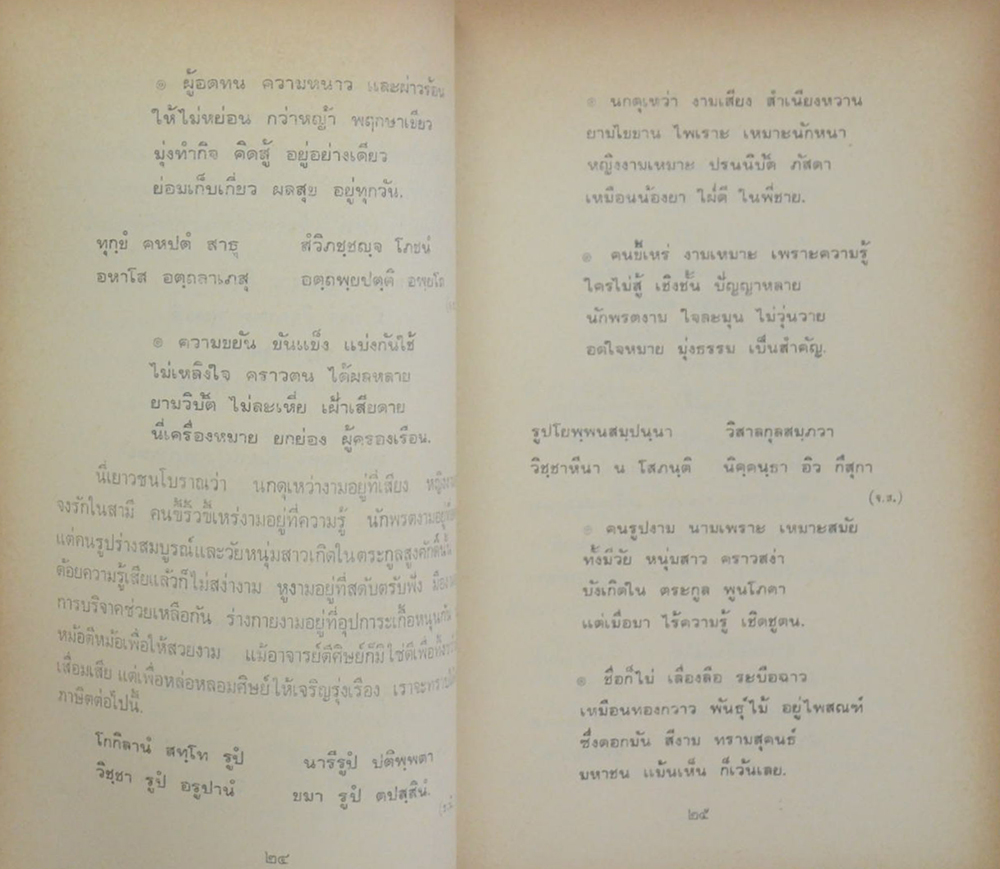 ๏ ผู้อดทน ความหนาว และผ่าวร้อน
ให้ไม่หย่อน กว่าหญ้า พฤกษาเขียว
มุ่งทำกิจ คิดสู้ อยู่อย่างเดียว
ย่อมเก็บเกี่ยว ผลสุข อยู่ทุกวัน.
ทุกฺยํ คหปตํ สาธุ สํวิภชฺชญฺจ โภชนํ
อหาโส อตฺถลาเภสุ อตฺถพฺยปตฺติ อพฺยโถ
๏ ความขยัน ขันแข็ง แบ่งกันใช้
ไม่เหลิงใจ คราวตน ได้ผลหลาย
ยามวิบัติ ไม่ละเหี่ย เฝ้าเสียดาย
นี่เครื่องหมาย ยกย่อง ผู้ครองเรือน.
นี่เยาวชนโบราณว่า นกดุเหว่างามอยู่ที่เสียง
จงรักในสามี คนขี้ริ้วขี้เหร่งามอยู่ที่ความรู้ นักพรตงาม
แต่คนรูปร่างสมบูรณ์และวัยหนุ่มสาวเกิดในตระกูลสูงศักดิ์นั้น
ด้อยความรู้เสียแล้วก็ไม่สง่างาม หูงามอยู่ที่สดับตรับฟัง
การบริจาคช่วยเหลือกัน ร่างกายงามอยู่ที่อุปการะเกื้อหนุนกัน
หม้อตีหม้อเพื่อให้สวยงาม แม้อาจารย์ตีศิษย์ก็มิใช่ตีเพื่อ
เสื่อมเสีย แต่เพื่อหล่อหลอมศิษย์ให้เจริญรุ่งเรือง เราจะ
ภาษิตต่อไปนี้.
โกกิลานํ สทฺโท รูปํ นารีรูปํ ปติพฺพตา
วิชฺชา รูปํ อรูปานํ ขมา รูปํ ตปสฺสินํ.
๒๔
๏ นกดุเหว่า งามเสียง สำเนียงหวาน
ยามไขขาน ไพเราะ เหมาะนักหนา
หญิงงามเหมาะ ปรนนิบัติ ภัสดา
เหมือนน้องยา ใฝ่ดี ในพี่ชาย.
๏ คนขี้เหร่ งามเหมาะ เพราะความรู้
ใครไม่สู้ เชิงชั้น ปัญญาหลาย
นักพรตงาม ใจละมุน ไม่วุ่นวาย
อดใจหมาย มุ่งธรรม เป็นสำคัญ.
รูปโยพฺพนสมฺปนฺนา วิสาลกุลสมฺภวา
วิชฺชาหีนา น โสภนฺติ นิคฺคนฺธา อิว กึสุกา
(จ.ส.)
๏ คนรูปงาม นามเพราะ เหมาะสมัย
ทั้งมีวัย หนุ่มสาว คราวสง่า
บังเกิดใน ตระกูล พูนโภคา
แต่เมื่อมา ไร้ความรู้ เชิดชูตน.
๏ ชื่อก็ไม่ เลื่องลือ ระบือฉาว
เหมือนทองกวาว พันธุ์ไม้ อยู่ไพสณฑ์
ซึ่งดอกมัน สีงาม ทรามสุคนธ์
มหาชน แม้นเห็น ก็เว้นเลย.
๒๕